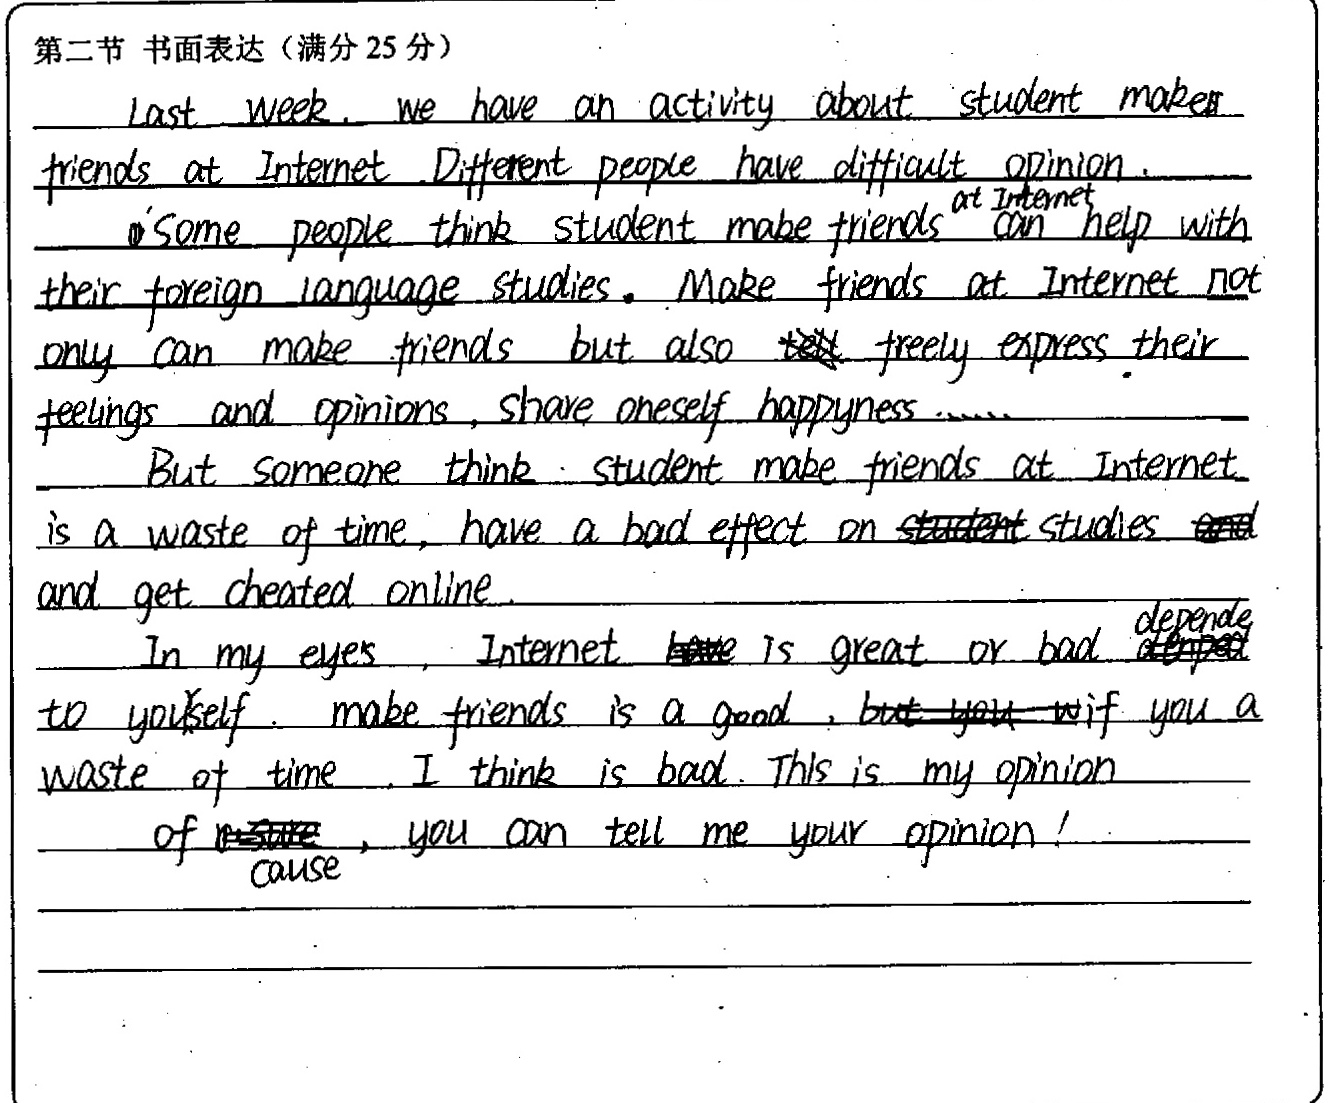 第二节 书面表达（满分25分）
Last week. we have an activity about student make
friends at Internet. Different people have difficult opinion.
Some people think student make friends at Internet can help with
their foreign language studies. Make friends at Internet not
only can make friends but also freely express their
feelings and opinions, share oneself happyness ......
But someone think student make friends at Internet
is a waste of time, have a bad effect on studies
and get cheated online.
In my eyes, Internet is great or bad depende
to youself. make friends is a good, if you a
waste of time. I think is bad. This is my opinion
of cause, you can tell me your opinion!